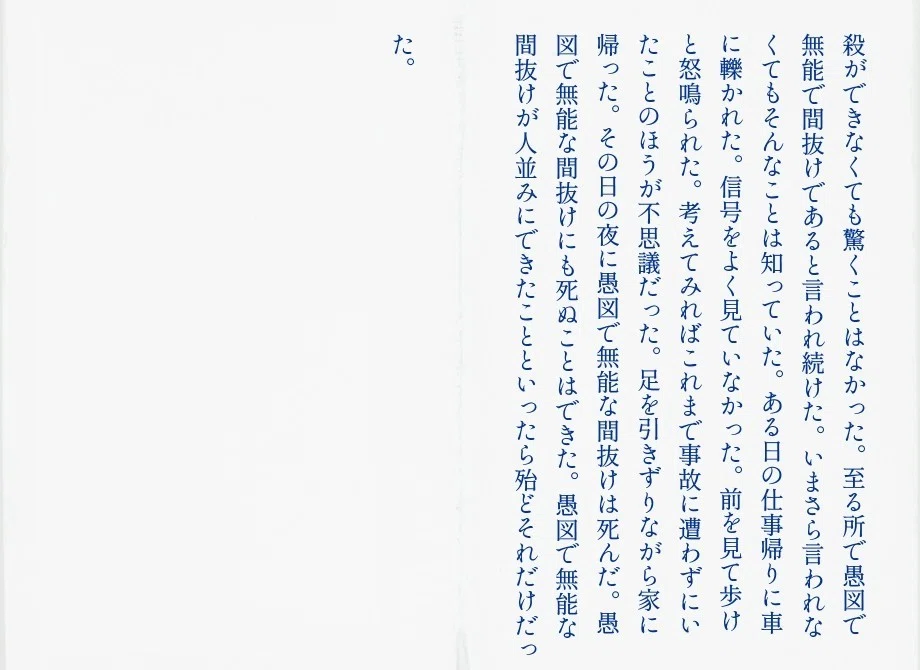 殺ができなくても驚くことはなかった。至る所で愚図で
無能で間抜けであると言われ続けた。いまさら言われな
くてもそんなことは知っていた。ある日の仕事帰りに車
に轢かれた。信号をよく見ていなかった。前を見て歩け
と怒鳴られた。考えてみればこれまで事故に遭わずにい
たことのほうが不思議だった。足を引きずりながら家に
帰った。その日の夜に愚図で無能な間抜けは死んだ。愚
図で無能な間抜けにも死ぬことはできた。愚図で無能な
間抜けが人並みにできたことといったら殆どそれだけだっ
た。